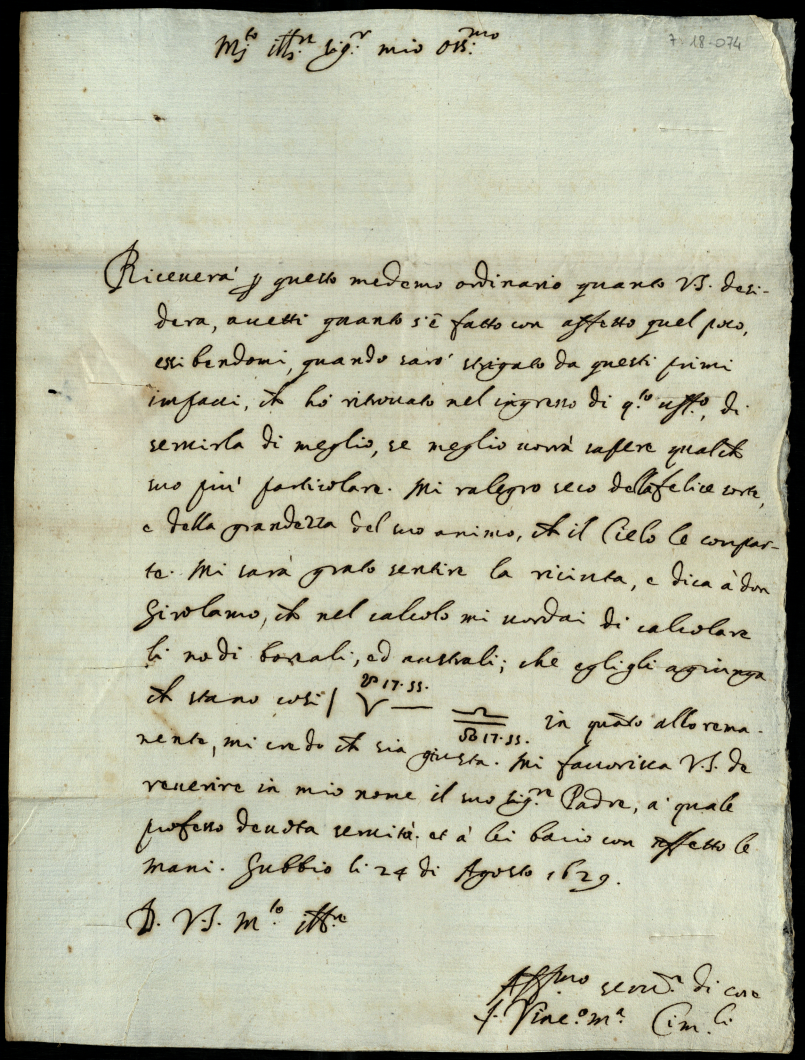 7-18-074
M.to ill.re Sig.r mio oss.mo
Riceverà p questo medemo ordinario quanto V.S. desi-
dera, accetti quanto s'è fatto con affetto quel poco,
essibendomi, quando sarò strigato da questi primi
impacci, ch ho ritrovato nel ingresso di q.to uff.o, di
servirla di meglio, se meglio vorrà sapere qualch
suo più particolare. Mi ralegro seco della felice sorte,
e della grandezza del suo animo, ch il Cielo le compar-
te. Mi sarà grato sentire la riceuta, e dica à don
Girolamo, ch nel calcolo mi scordai di calcolare
li nodi boreali, ed australi; che egli gli agiunga
ch stano così / ♈ — ♎
♑ 17.55. 17.55. in quāto allo rema-
nente, mi credo ch sia giusta. Mi favorisca V.S. de
reverire in mio nome il suo Sig.re Padre, a quale
professo devota servità. et à lei bacio con affetto le
mani. Gubbio li 24 di Agosto 1629.
D. V.S. M.to ill.re
Aff.mo serv.re di core
f. Vinc.o M.a Cim.li